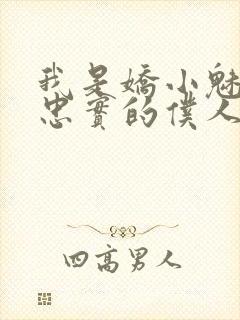 我是嬌小魅
忠實的僕人
四高男人